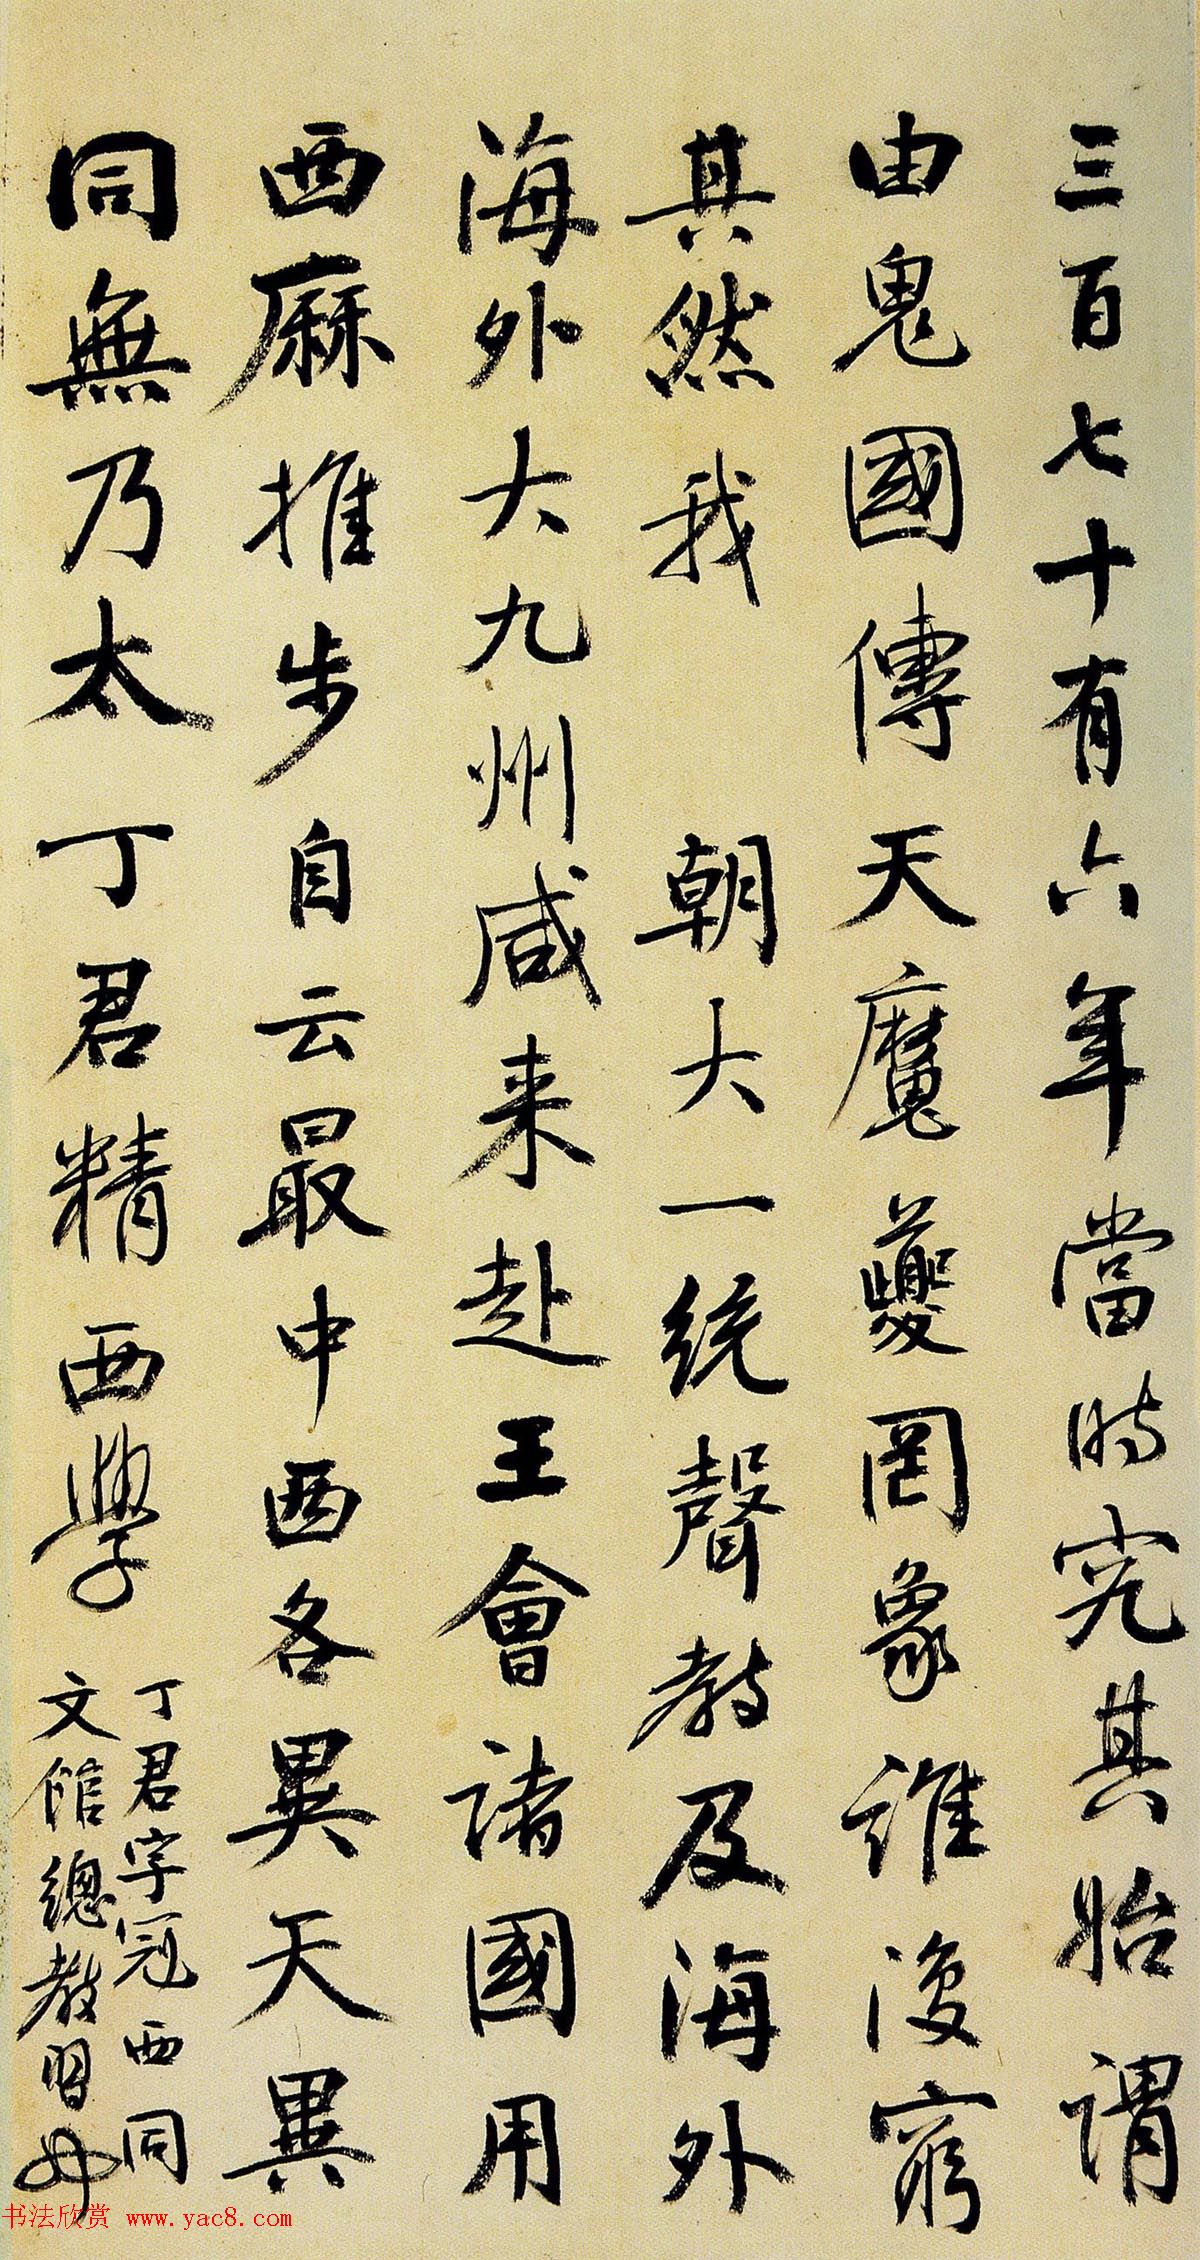 三百七十有六年當時究其始謂
由鬼國傳天魔夔罔象誰復窮
其然我朝大一統聲教及海外
海外大九州咸来赴王會諸國用
西厤推步自云最中西各異天異
同無乃太丁君精西學
丁君字冠西同
文馆總教習也
书法欣赏 www.yac8.com